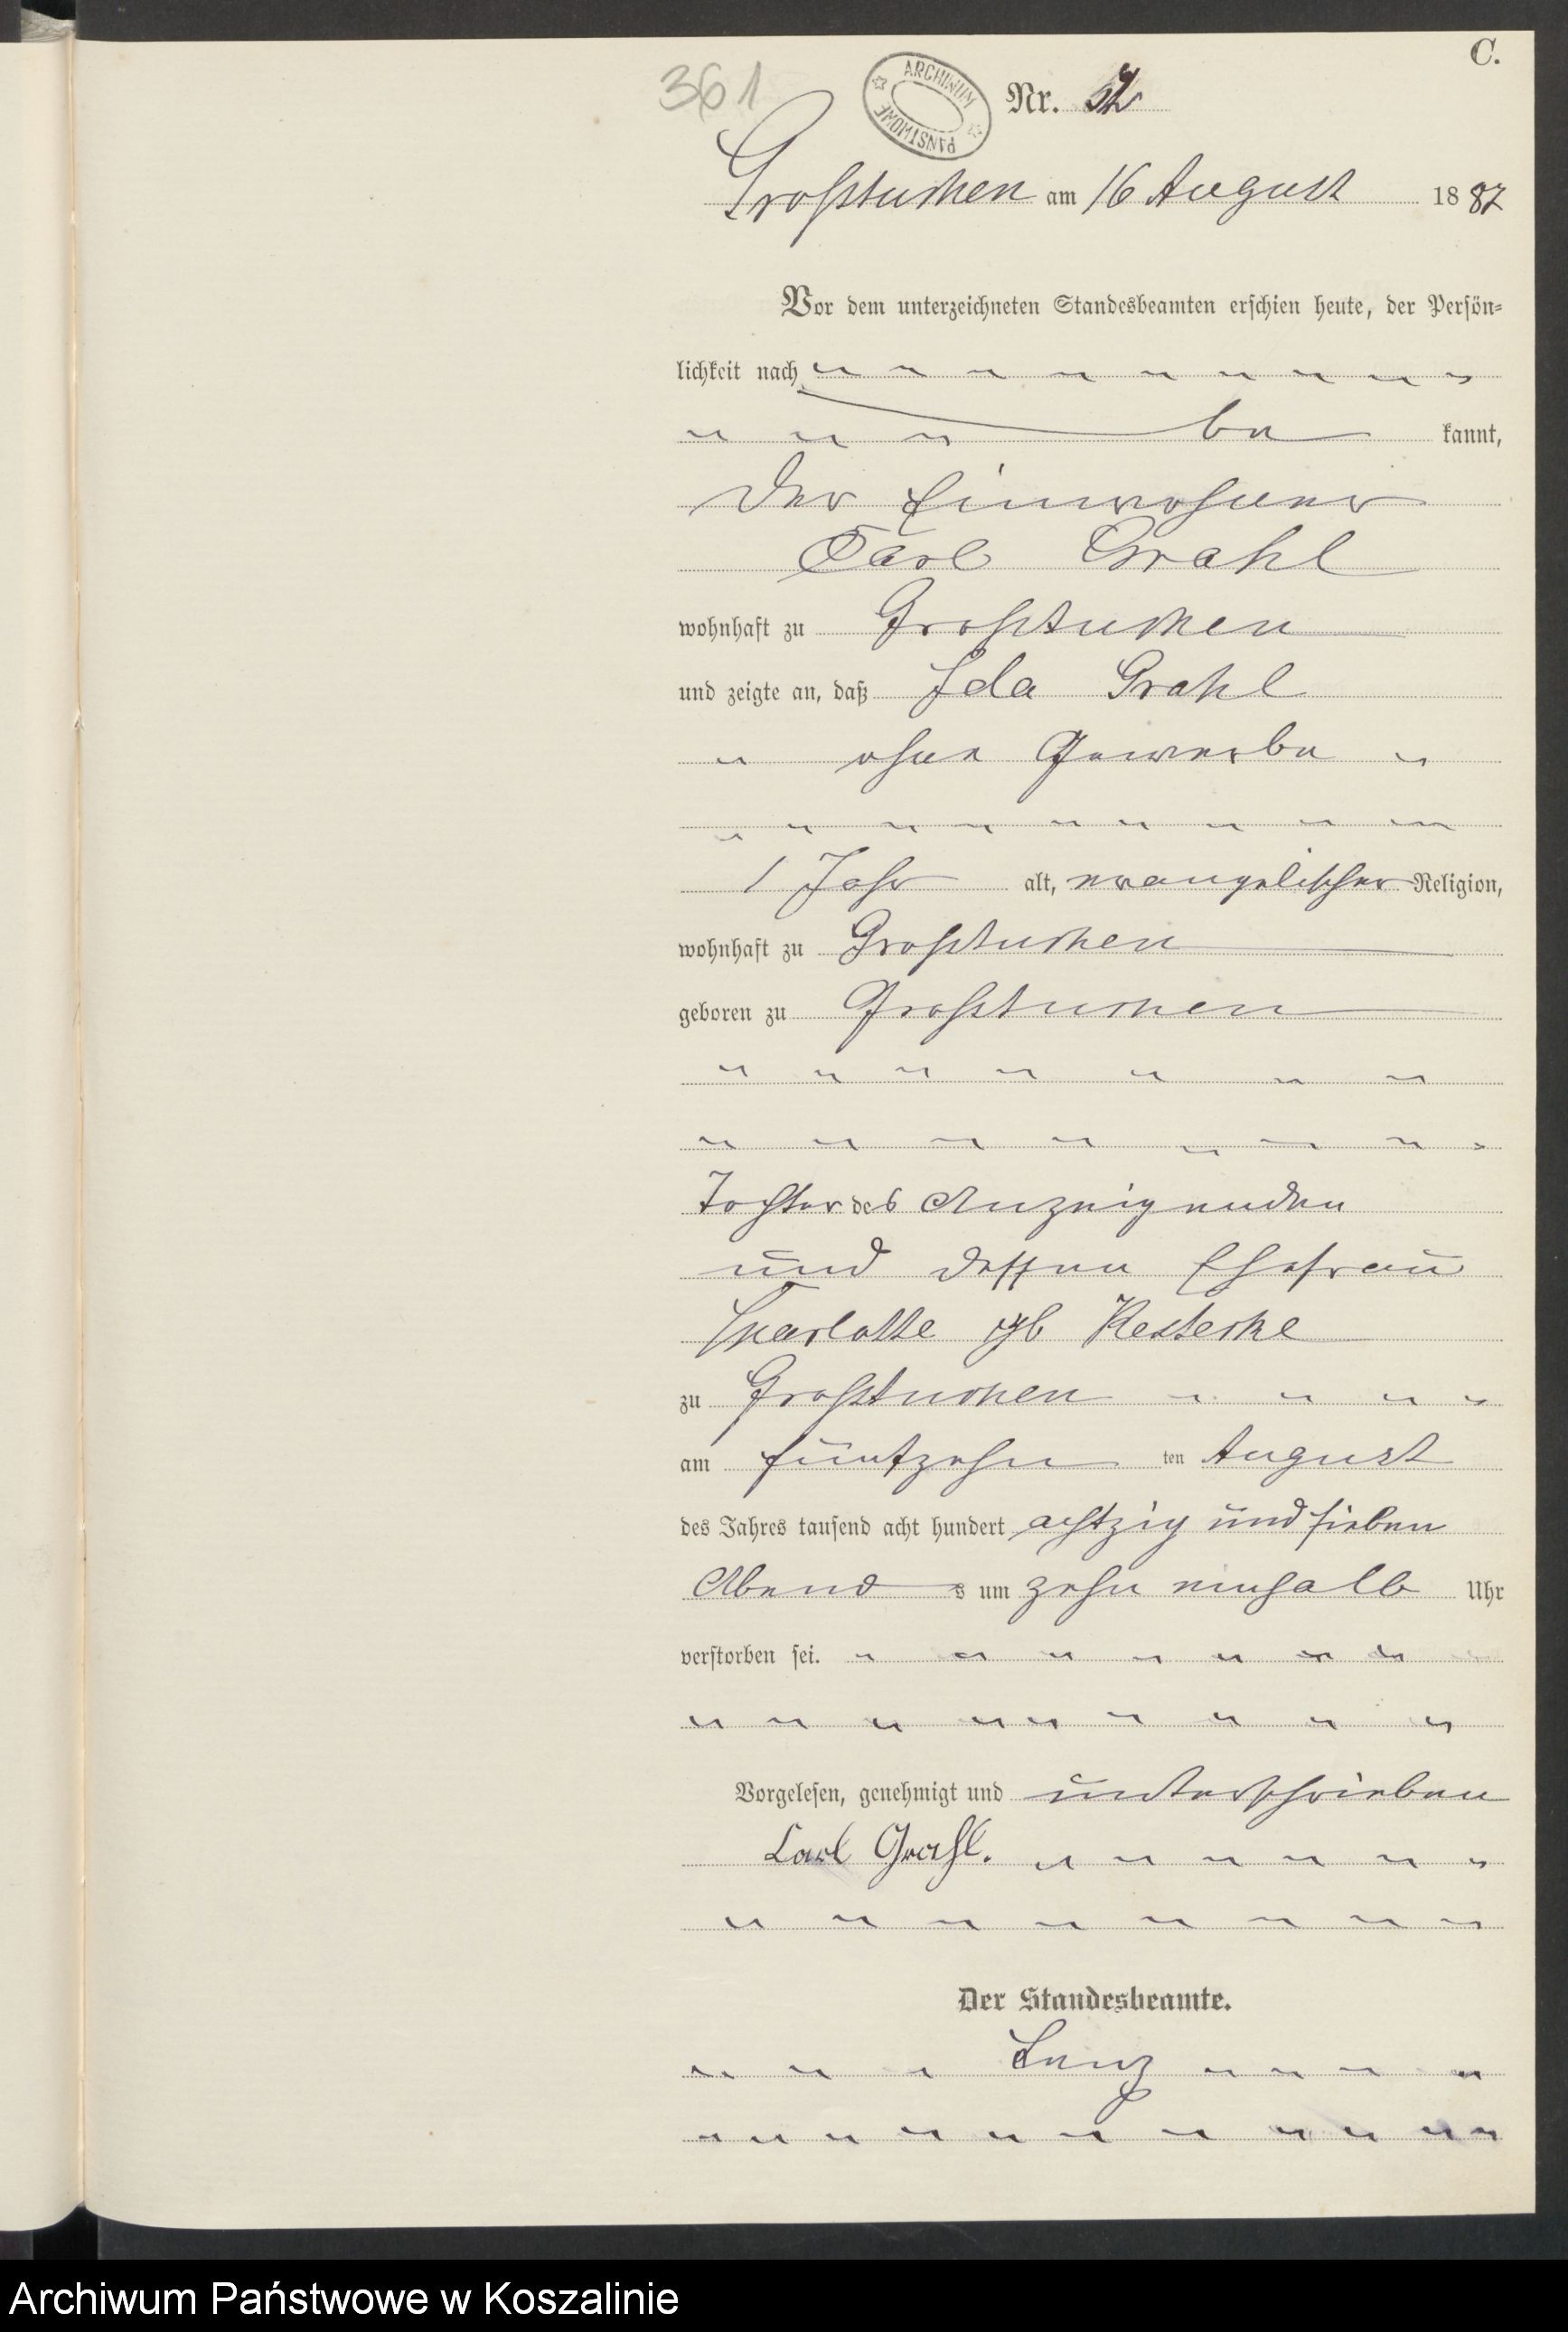 C.
361
ARCHIWUM PAŃSTWOWE
Nr.
Großtuchen am 16 August 1887
Vor dem unterzeichneten Standesbeamten erschien heute, der Persön-
lichkeit nach
be kannt,
der Einwohner
Carl Grahl
wohnhaft zu Großtuchen
und zeigte an, daß Ida Grahl
ohne Gewerbe
1 Jahr alt, evangelischer Religion,
wohnhaft zu Großtuchen
geboren zu Großtuchen
Tochter des Anzeigenden
und dessen Ehefrau
Charlotte gb
zu Großtuchen
am fünfzehn ten August
des Jahres tausend acht hundert achtzig und sieben
Abend s um zehn einhalb Uhr
verstorben sei.
Vorgelesen, genehmigt und unterschrieben
Carl Grahl.
Der Standesbeamte.
Lenz
Archiwum Państwowe w Koszalinie